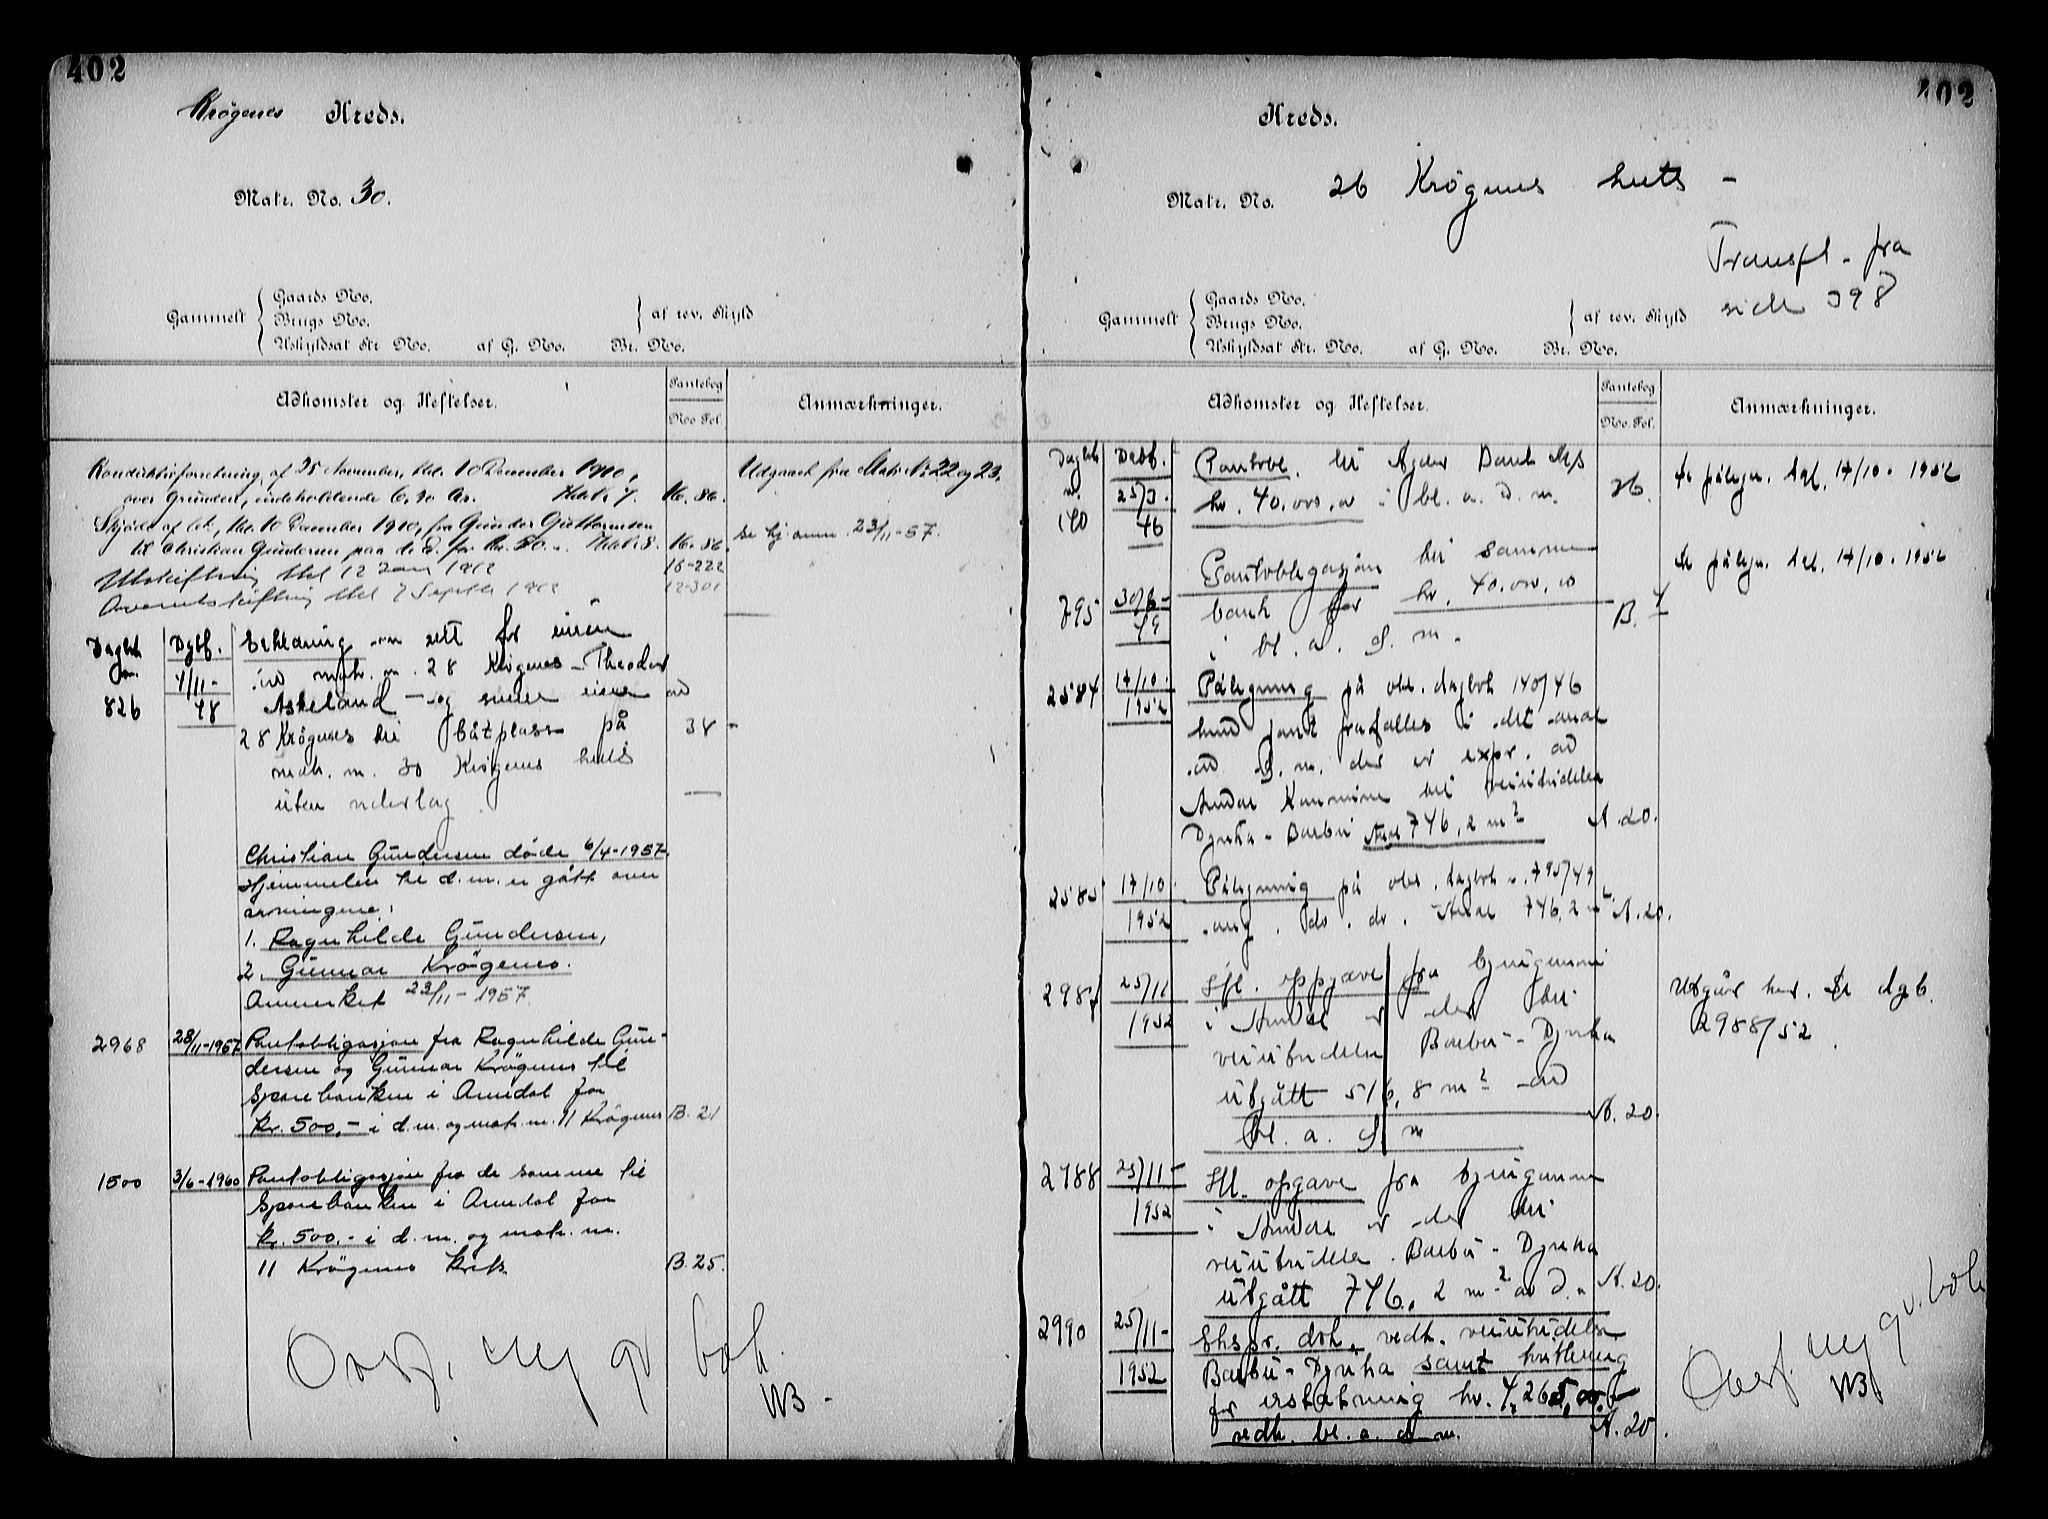 402
Krøgenes Kreds.
Matr. No. 30.
Gammelt
Gaards No.
Brugs No.
Uskyldsat Str. No. af G. No. Br. No.
af rev. Skyld
Adkomster og Heftelser.
Pantebog
No. Fol.
Anmærkninger.
Konduktørforretning af 25 November, thl. 10 December 1910,
over Grunden, indeholdende 6,30 Ar. 16. 86.
Skjøde af td., thl. 10 December 1910, fra Gunder Guttormsen
til Christian Gundersen paa d. E. for kr. 50.-. 16. 86.
Udskiftning thl 12 Janr 1912 16-222
Overudskiftning thl 7 Septbr 1912 12-301
Udgaaet fra Matr. No 22 og 23.
se hj. anm. 23/11-57.
Dagbok
nr. 826
Dgbf.
4/11-
48
Erklæring om rett for eieren
av matr. nr. 28 Krøgenes - Theodor
Askeland - og senere eiere av
28 Krøgenes til båtplass på 38 -
matr. nr. 30 Krøgenes krets
uten vederlag.
Christian Gundersen døde 6/4-1957.
Hjemmelen til d.m. er gått over
arvingene:
1. Ragnhilde Gundersen,
2. Gunnar Krögenes.
Anmerket 23/11-1957.
2968 23/11-1957 Pantobligasjon fra Ragnhilde Gun-
dersen og Gunnar Krögenes til
Sparebanken i Arendal for
kr. 500,- i d.m. og matr. nr. 11 Krögenes B. 21
1500 3/6-1960 Pantobligasjon fra de samme til
Sparebanken i Arendal for
kr. 500.- i d.m. og matr. nr.
11 Krögenes krets B. 25.
Overf. ny gr. bok.
WB -
402
Kreds.
Matr. No. 26 Krøgenes krets -
Transp. fra
side 398
Gammelt
Gaards No.
Brugs No.
Uskyldsat Str. No. af G. No. Br. No.
af rev. Skyld
Adkomster og Heftelser.
Pantebog
No. Fol.
Anmærkninger.
Dagbok
nr.
140
Dagbf.
25/3.
46
Pantobl. til Agder Bank A/S
kr. 40.000,00 i bl. a. d. m.
Se påtegn. dgl. 17/10. 1952
795 30/6-
49
Pantobligasjon til samme
bank for kr. 40.000,00
i bl. a. d. m. B. 4
Se påtegn. dgl. 17/10. 1952
2584 17/10.
1952
Påtegning på obl. dagbok 140/46
hvor pant frafalles i det areal
av d. m. der er expr. av
Arendal Kommune til veiutvidelse
Dyvika - Barbu Areal 746,2 m² A. 20.
2585 17/10.
1952
Påtegning på obl. dagbok nr. 795/49
ang. do. do. Areal 746,2 m² A. 20.
2987 25/11
1952
Hfl. oppgave fra byingeniøren
i Arendal er der til
veiutvidelse Barbu - Dyvika
utgått 516,8 m² av
bl. a. d. m A. 20.
Utgår her. Se dgb.
2988/52.
2988 25/11-
1952
Hfl. opgave fra byingeniøren
i Arendal er der til
veiutvidelse. Barbu - Dyvika
utgått 746,2 m² av d. m. A. 20.
2990 25/11-
1952
Ekspr. dok. vedk. veiutvidelse
Barbu - Dyvika samt kvittering
for erstatning kr. 4.265,00
vedk. bl. a. d m. A. 20.
Overf. ny gr. bok
WB